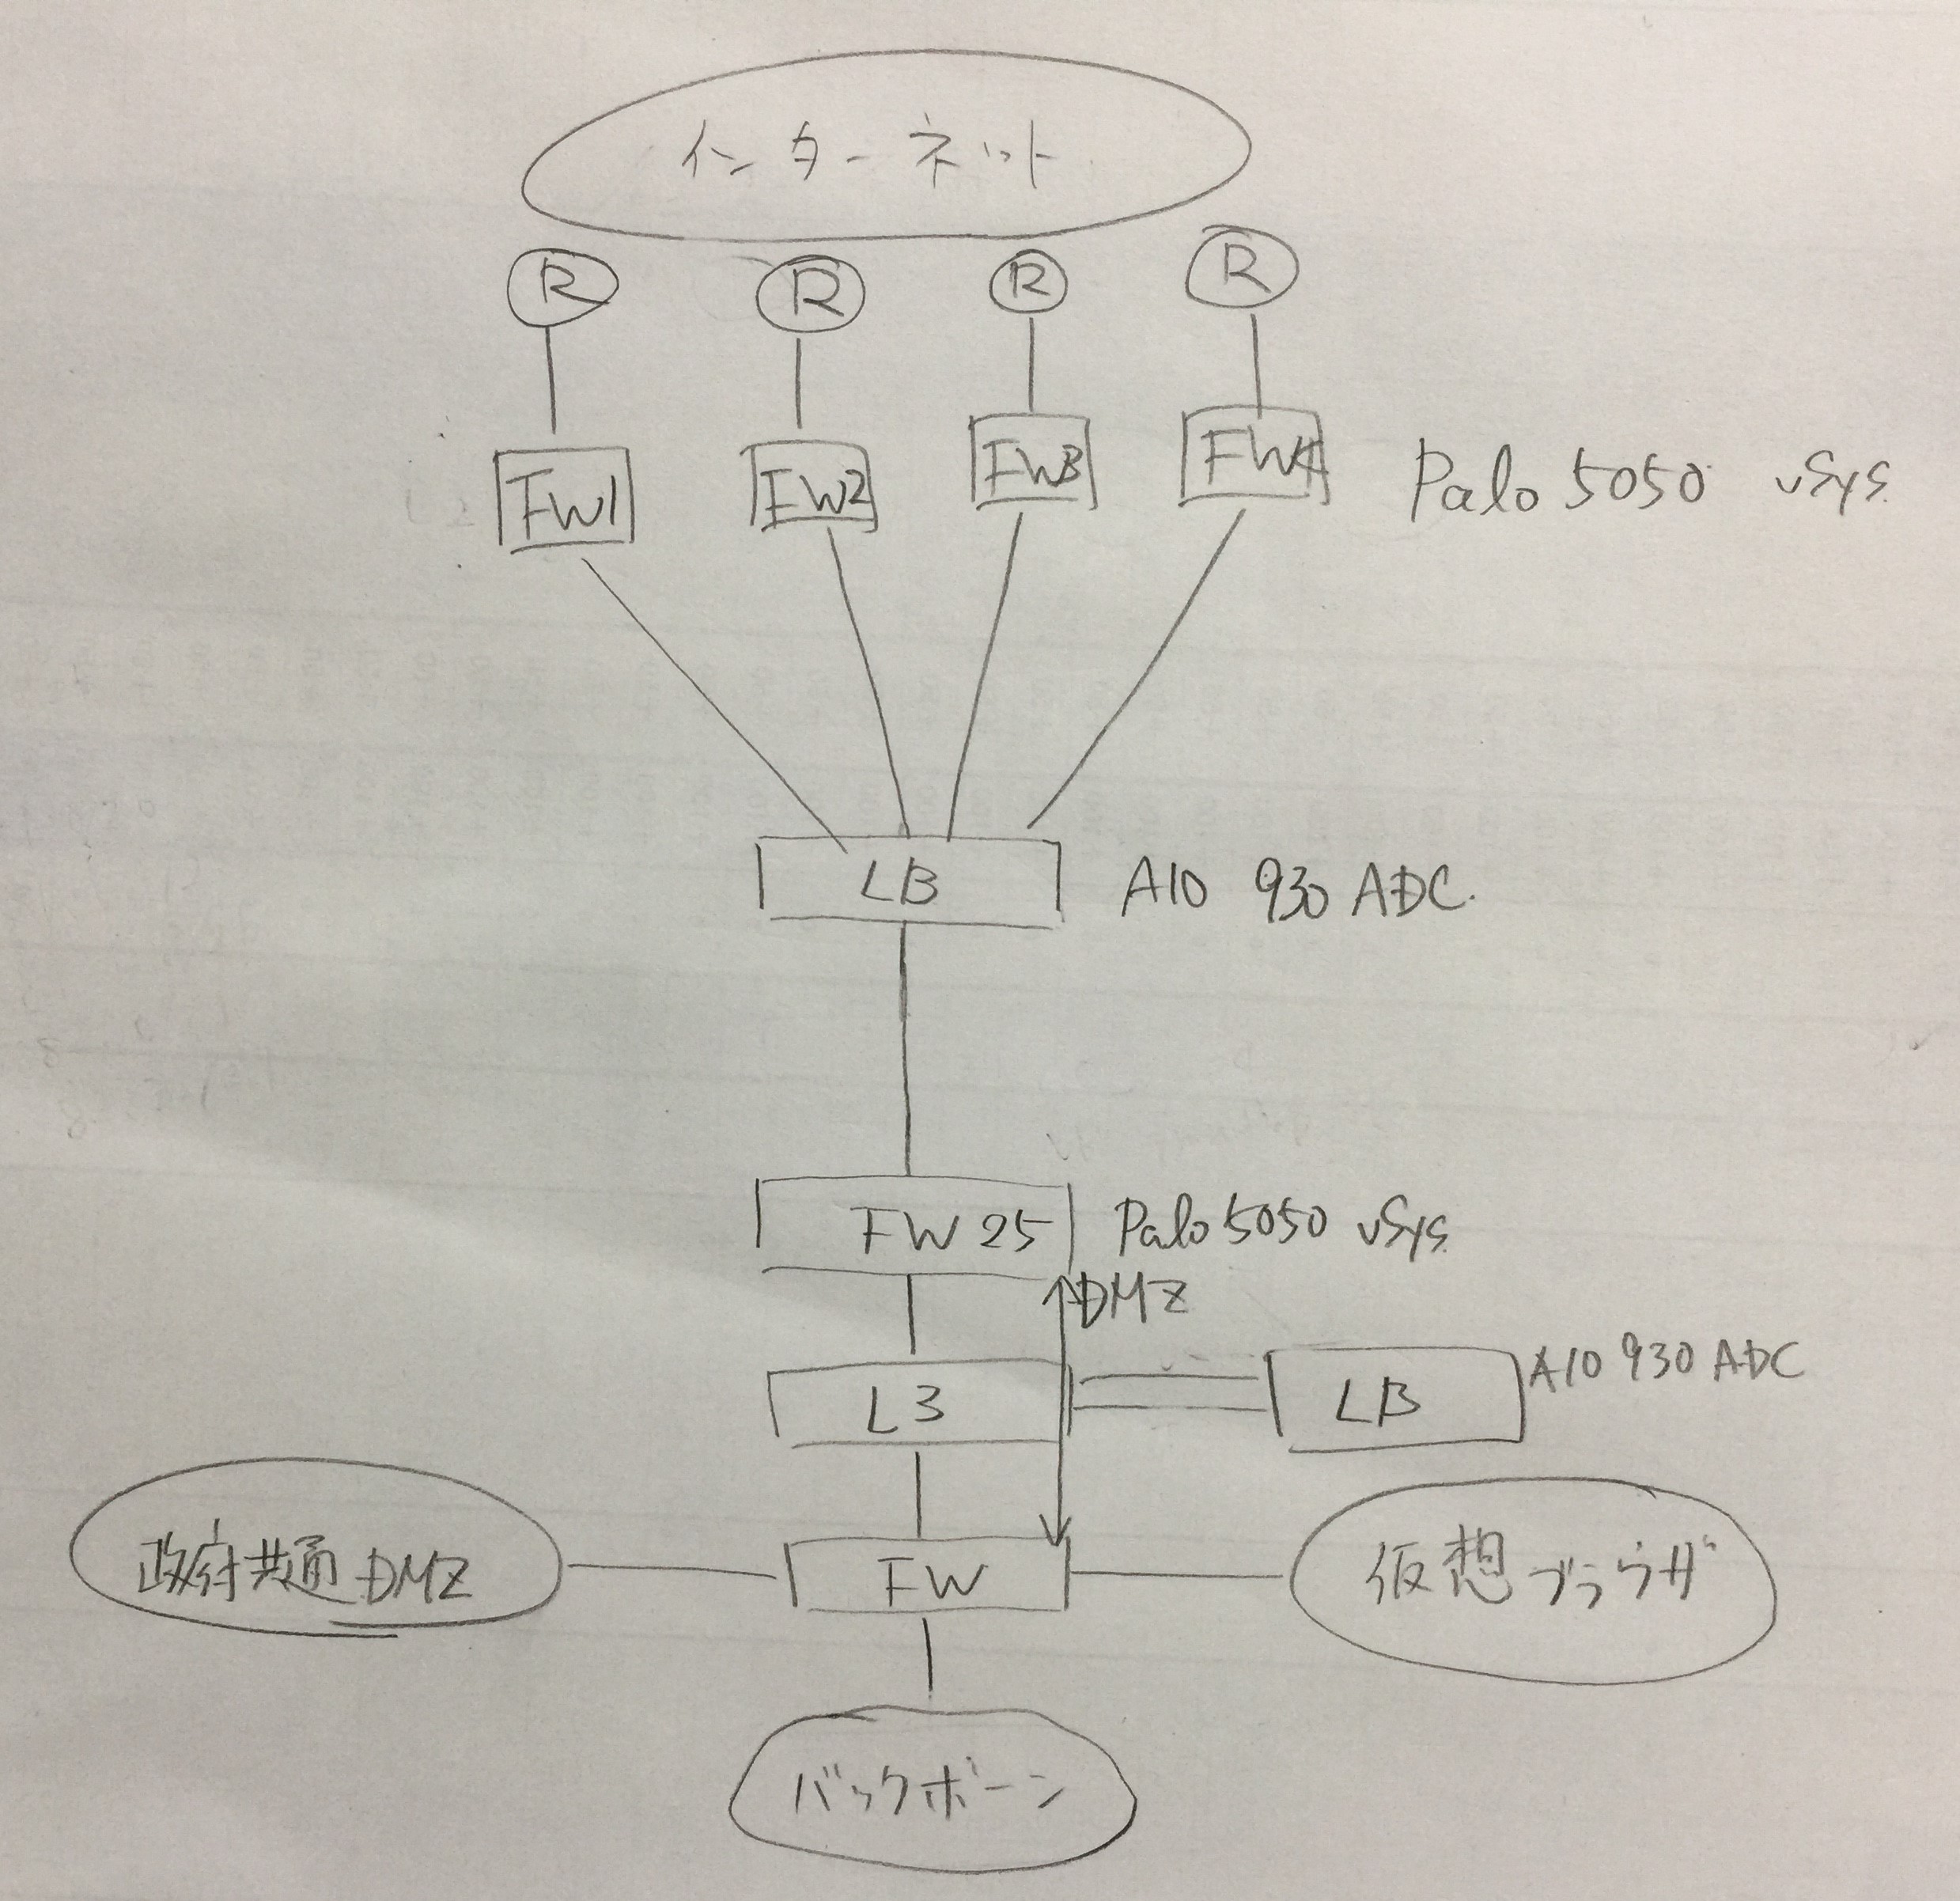 インターネット
R
R
R
R
FW1
FW2
FW3
FW4
Palo 5050 vSys.
LB
A10 930 ADC.
FW 25
Palo 5050 vSys.
DMZ
L3
LB
A10 930 ADC
政府共通DMZ
FW
仮想ブラウザ
バックボーン